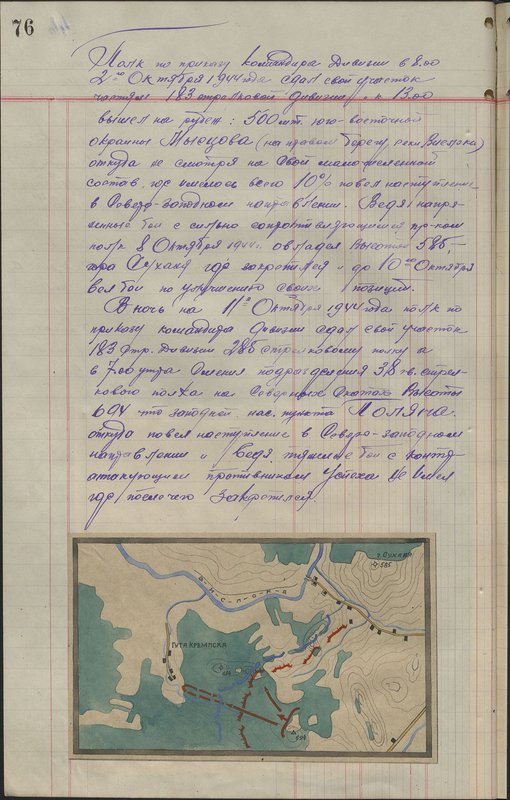 76
Полк по приказу командира Дивизии в 8.00
2го Октября 1944 года сдал свой участок
частям 183 стрелковой дивизии, к 13.00
вышел на рубеж: 500 мт. юго-восточной
окраины (на правом берегу, реки Вислока)
откуда не смотря на свой малочисленный
состав, где имелось всего 10% повел наступление
в Северо-западном направлении. Ведя напря-
женные бои с сильно сопротивляющимся пр-ком
полк 8 Октября 1944 г. овладел высотой 585,
гора Сухана где закрепился и до 10го Октября
вел бои по улучшению своих позиций.
В ночь на 11е Октября 1944 года полк по
приказу командира дивизии сдал свой участок
183 Стр. Дивизии 285 стрелковому полку а
в 7.00 утра сменил подразделения 38 гв. стрел-
кового полка на Северных Скатах Высоты
694 что западней нас. пункта Поляна.
откуда повел наступление в Северо-западном
направлении и Ведя тяжелые бои с контр-
атакующим противником успеха не имел
где после чего закрепился.
г. Сухана
585
Вислока
Гута Кремпска
694